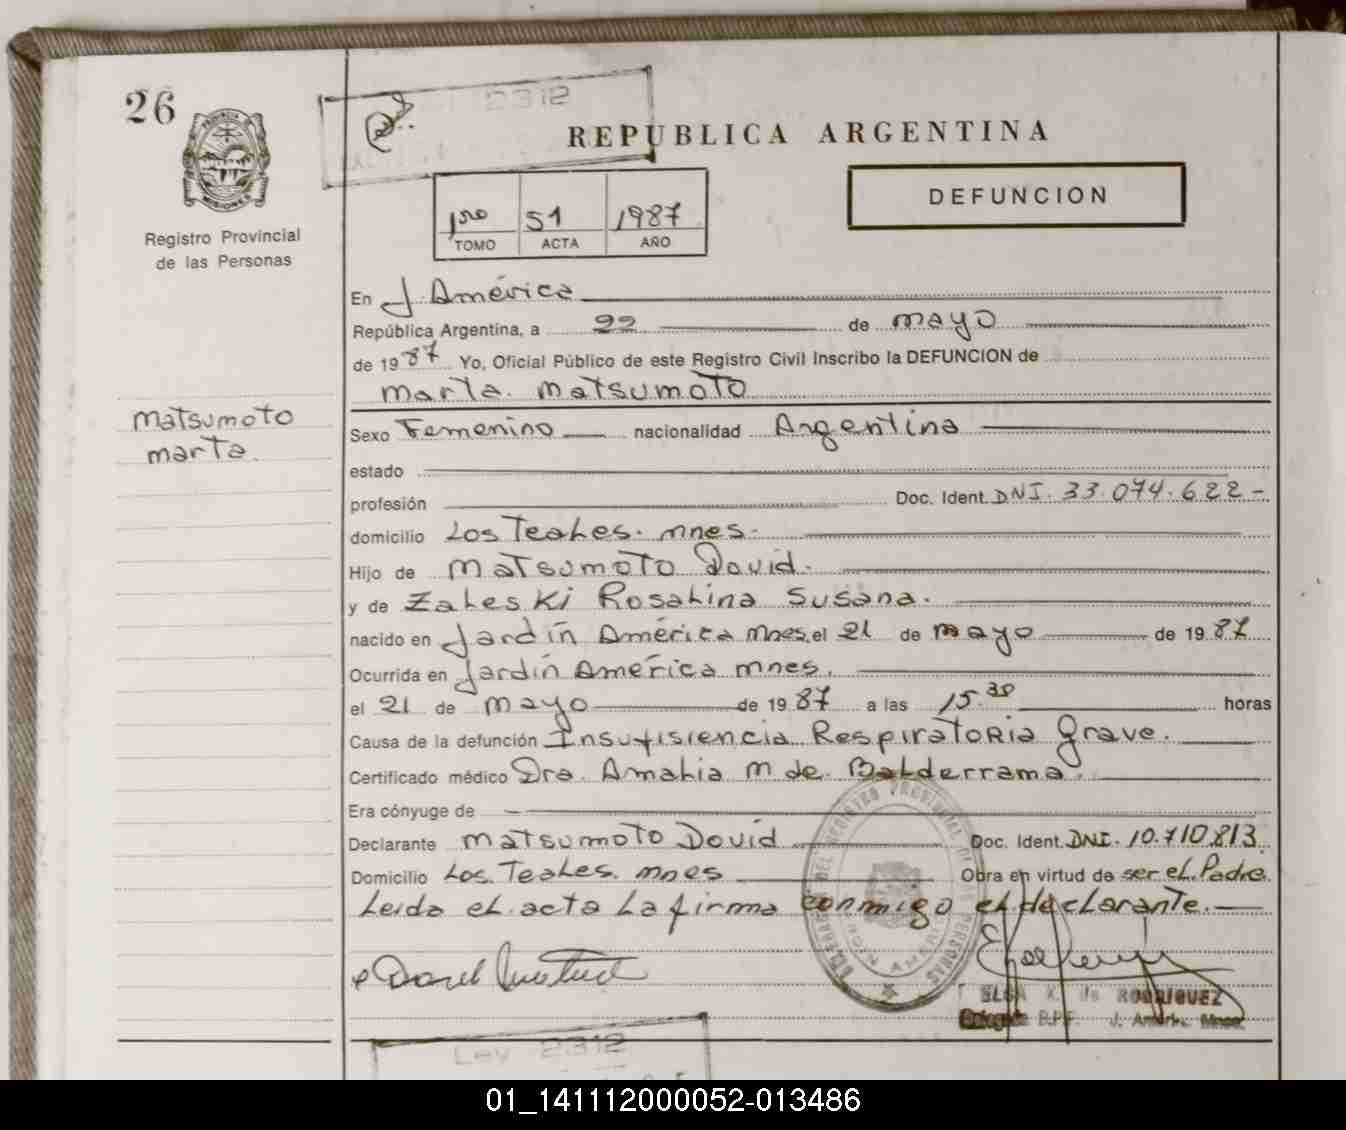 26
PROVINCIA DE
MISIONES
Registro Provincial
de las Personas
2312
REPUBLICA ARGENTINA
DEFUNCION
1ro 51 1987
TOMO ACTA AÑO
En J. América
República Argentina, a 22 de mayo
de 1987 Yo, Oficial Público de este Registro Civil Inscribo la DEFUNCION de
Marta. Matsumoto
Matsumoto
Marta.
Sexo Femenino nacionalidad Argentina
estado
profesión Doc. Ident. DNI. 33.074.622-
domicilio Los Teales. mnes.
Hijo de Matsumoto David.
y de Zaleski Rosalina Susana.
nacido en Jardín América Mnes. el 21 de mayo de 1987
Ocurrida en Jardín América mnes.
el 21 de mayo de 1987 a las 15.30 horas
Causa de la defunción Insufisiencia Respiratoria grave.
Certificado médico Dra. Amalia M de. Balderrama.
Era cónyuge de -
Declarante Matsumoto David Doc. Ident. DNI. 10.710.813.
Domicilio Los. Teales. mnes Obra en virtud de ser el. Padre.
Leida el. acta La firma conmigo el declarante.
DELEGACION DEL REGISTRO PROVINCIAL DE LAS PERSONAS
JARDIN AMERICA
ELSA K. de RODRIGUEZ
Delegada B.P.F. J. América Mnes.
Ley 2312
01_141112000052-013486